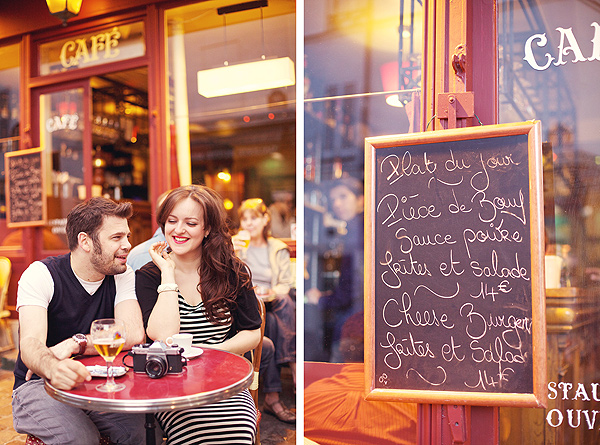 CAFÉ
CAFÉ
CAFÉ
Plat du jour
Pièce de Bœuf
Sauce poivre
frites et Salade
14€
Cheese Burger
frites et Salad
14€
STAU
OUVE